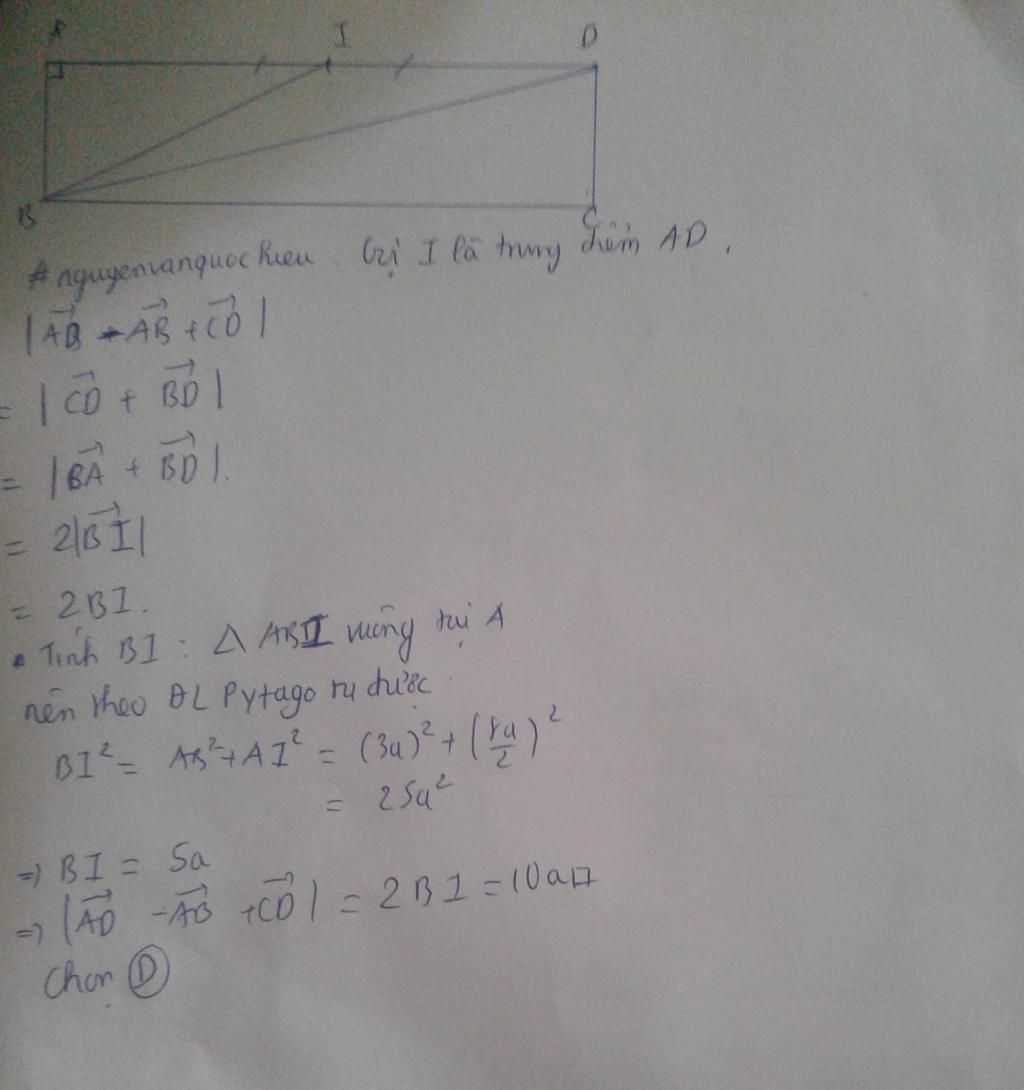 A I D
B C
#nguyenvanquochieu. Gọi I là trung điểm AD.
|\overrightarrow{AB} - \overrightarrow{AB} + \overrightarrow{CD}|
= |\overrightarrow{CD} + \overrightarrow{BD}|
= |\overrightarrow{BA} + \overrightarrow{BD}|.
= 2|\overrightarrow{BI}|
= 2BI.
• Tính BI : Δ ABI vuông tại A
nên theo ĐL Pytago ta được:
BI² = AB² + AI² = (3a)² + (8a/2)²
= 25a²
=> BI = 5a
=> |\overrightarrow{AD} - \overrightarrow{AB} + \overrightarrow{CD}| = 2BI = 10a □
Chọn Ⓓ